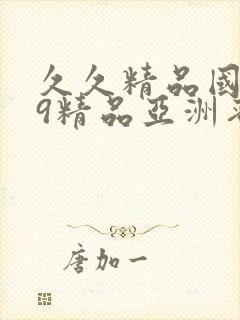 久久精品國
9精品亞洲
唐加一